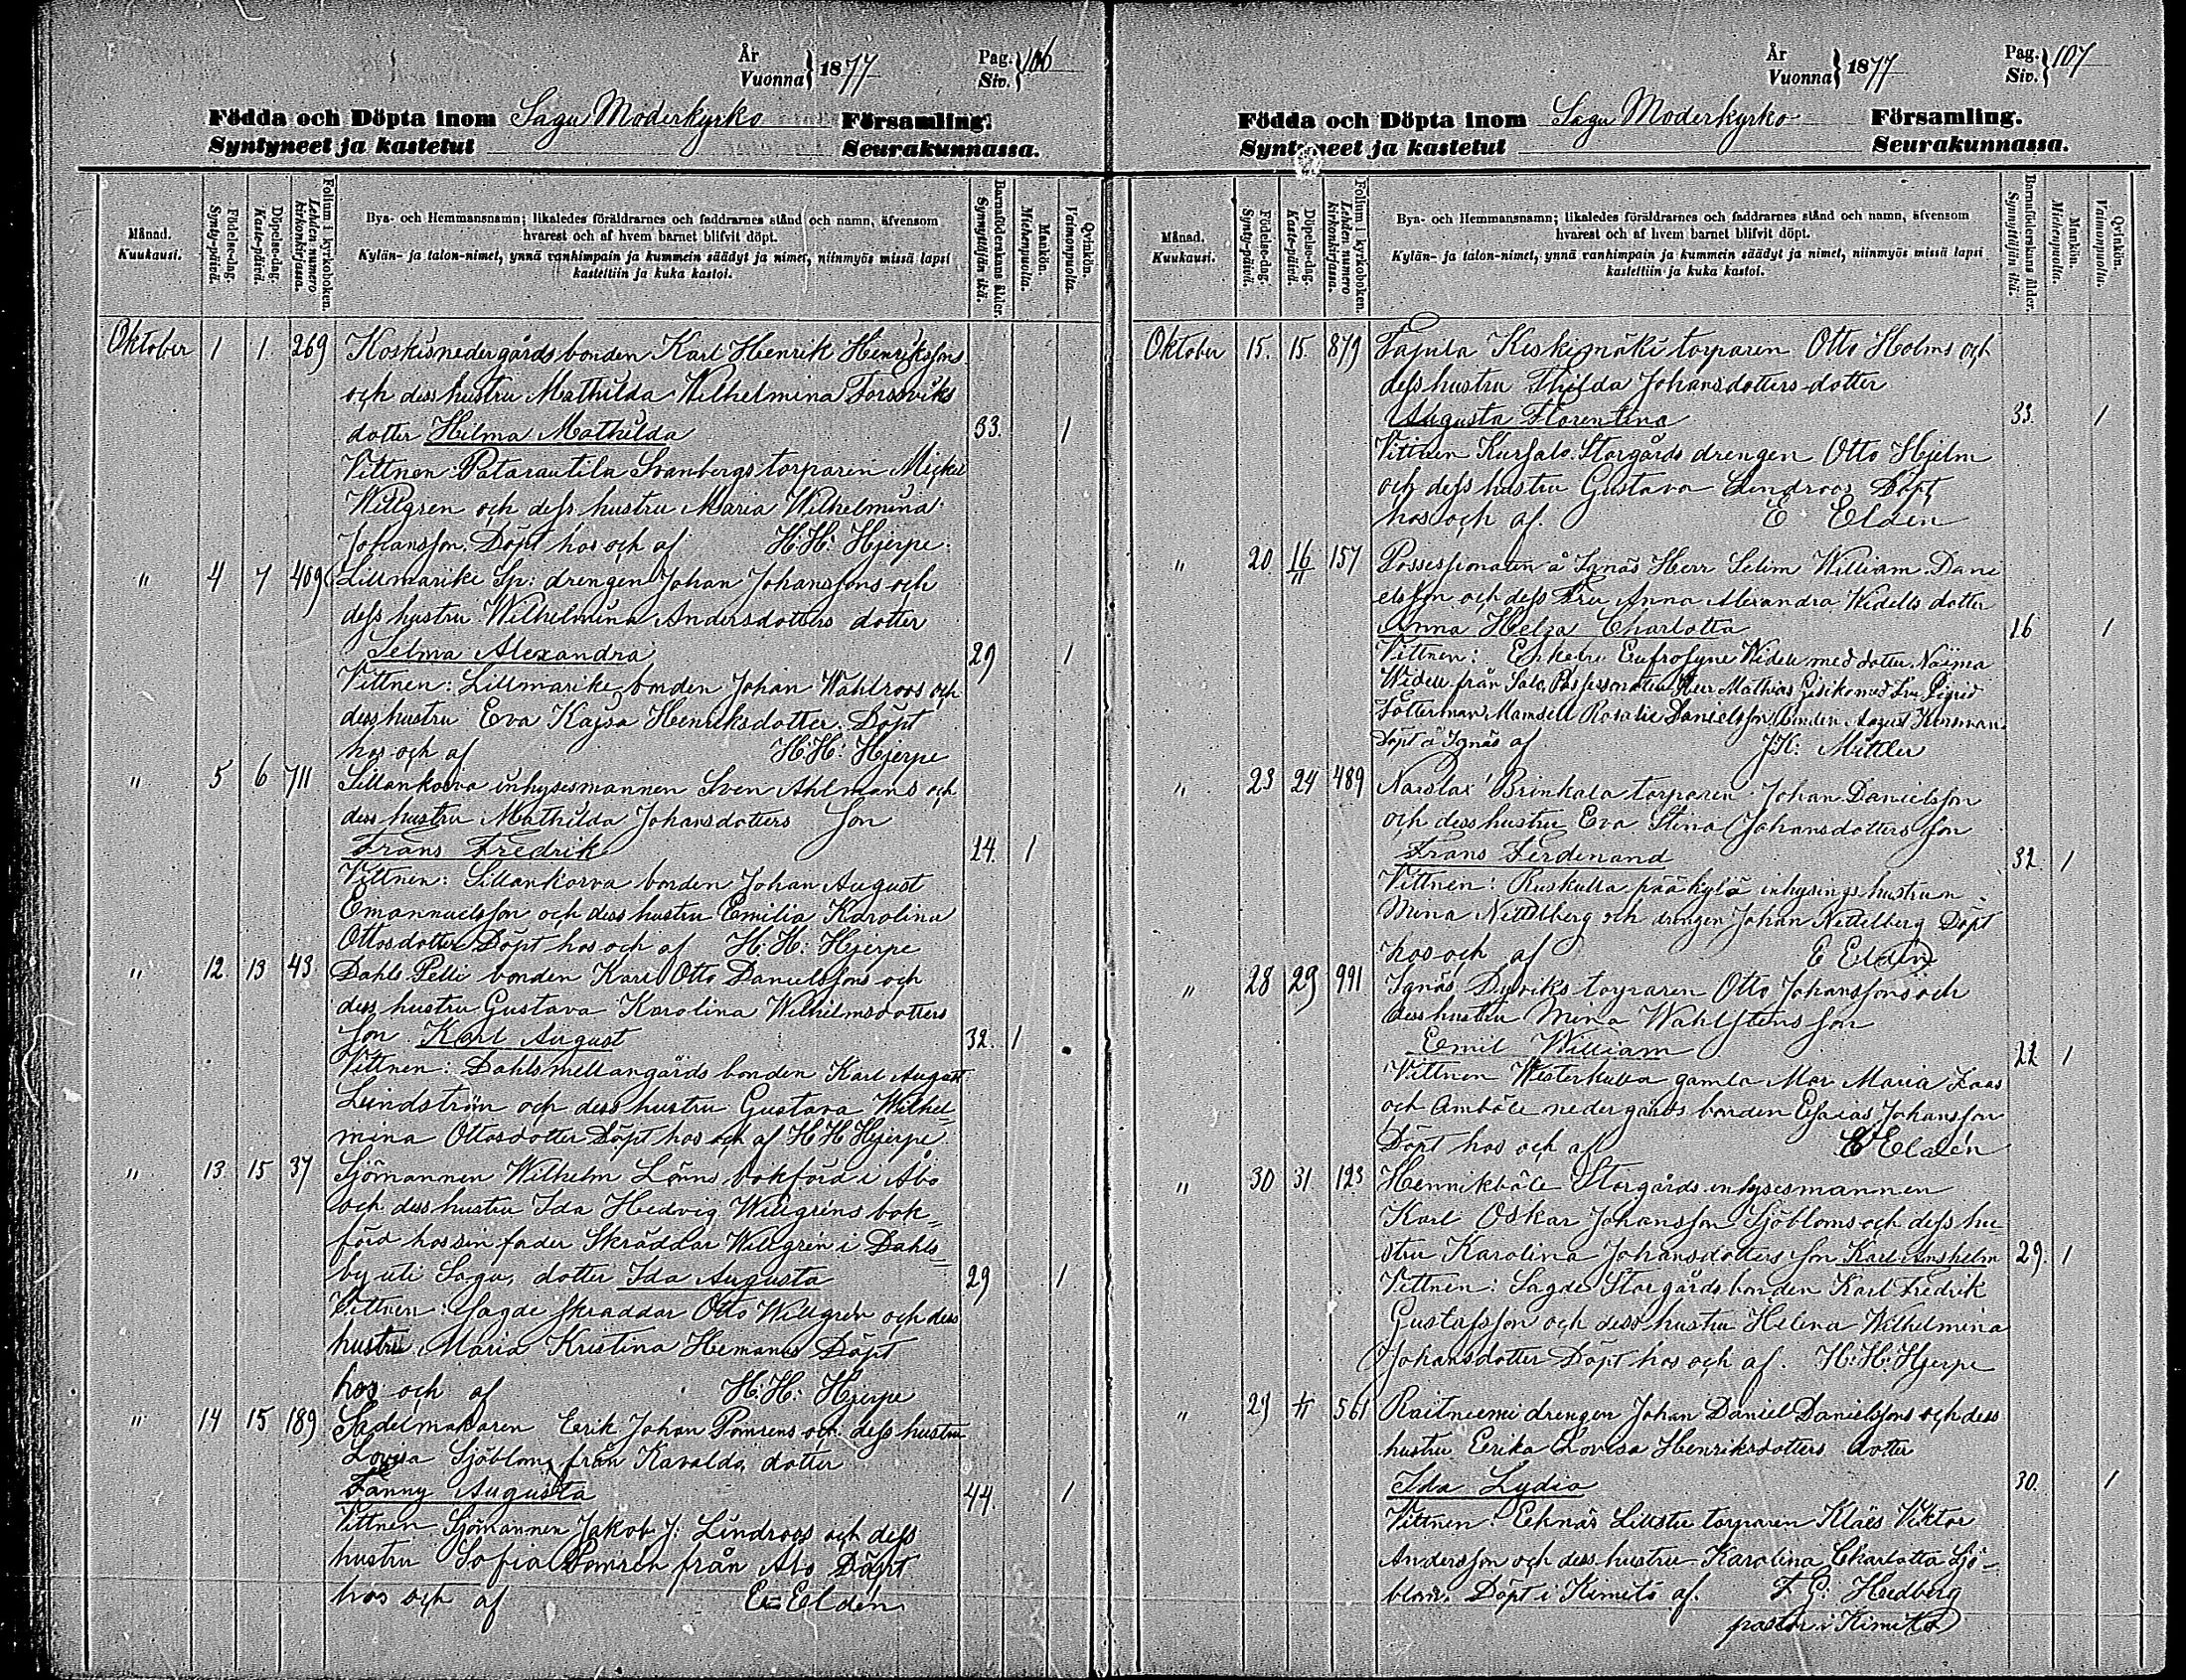 År
Vuonna } 1877
Pag.
Siv. } 106
Födda och Döpta inom Sagu Moderkyrko Församling.
Syntyneet ja kastetut Seurakunnassa.
Månad.
Kuukausi.
Födelse-dag.
Synty-päivä.
Döpelse-dag.
Kaste-päivä.
Folium i kyrkoboken.
Lehden numero kirkonkirjassa.
Bya- och Hemmansnamn; likaledes föräldrarnes och faddrarnes stånd och namn, äfvensom
hvarest och af hvem barnet blifvit döpt.
Kylän- ja talon-nimet, ynnä vanhimpain ja kummein säädyt ja nimet, niinmyös missä lapsi
kastettiin ja kuka kastoi.
Barnaföderskans ålder.
Synnyttäjän ikä.
Mankön.
Miehenpuolta.
Qvinkön.
Vaimonpuolta.
Oktober 1 1 269 Koskis nedergårds bonden Karl Henrik Henrikssons
och dess hustru Mathilda Wilhelmina Forsviks
dotter Hilma Mathilda 33. 1
Vittnen: Patarautila Svanbergs torparen Mickel
Willgren och dess hustru Maria Wilhelmina
Johansson. Döpt hos och af H:H: Hjerpe.
" 4 7 409 Lillmarike Sp: drengen Johan Johanssons och
dess hustru Wilhelmina Andersdotters dotter
Selma Alexandra 29 1
Vittnen: Lillmarike bonden Johan Wahlroos och
dess hustru Eva Kajsa Henriksdotter. Döpt
hos och af H:H: Hjerpe
" 5 6 711 Sillankorva inhysesmannen Sven Ahlmans och
dess hustru Mathilda Johansdotters Son
Frans Fredrik 24. 1
Vittnen: Sillankorva bonden Johan August
Emanuelsson och dess hustru Emilia Karolina
Ottosdotter Döpt hos och af H:H: Hjerpe
" 12. 13 43. Dahls Pelli bonden Karl Otto Danielssons och
dess hustru Gustava Karolina Wilhelmsdotters
Son Karl August 32. 1
Vittnen: Dahlsmellangårds bonden Karl August
Lindström och dess hustru Gustava Wilhel-
mina Ottosdotter Döpt hos och af H H Hjerpe
" 13. 15 37 Sjömannen Wilhelm Lönns bokförd i Åbo
och dess hustru Ida Hedvig Willgréns bok-
förd hos sin fader Skräddar Willgrén i Dahls-
by uti Sagu, dotter Ida Augusta 29 1
Vittnen: Sagde Skräddar Otto Willgrén och dess
hustru Maria Kristina Hemanus Döpt
hos och af H:H: Hjerpe
" 14 15 189 Sadelmakaren Erik Johan Pomrens och dess hustru
Lovisa Sjöblom, från Kavalda, dotter
Fanny Augusta 44. 1
Vittnen Sjömannen Jakob J: Lindroos och dess
hustru Sofia Pomrén från Åbo Döpt
hos och af E Eldén
År
Vuonna } 1877
Pag.
Siv. } 107
Födda och Döpta inom Sagu Moderkyrko Församling.
Syntyneet ja kastetut Seurakunnassa.
Månad.
Kuukausi.
Födelse-dag.
Synty-päivä.
Döpelse-dag.
Kaste-päivä.
Folium i kyrkoboken.
Lehden numero kirkonkirjassa.
Bya- och Hemmansnamn; likaledes föräldrarnes och faddrarnes stånd och namn, äfvensom
hvarest och af hvem barnet blifvit döpt.
Kylän- ja talon-nimet, ynnä vanhimpain ja kummein säädyt ja nimet, niinmyös missä lapsi
kastettiin ja kuka kastoi.
Barnaföderskans ålder.
Synnyttäjän ikä.
Mankön.
Miehenpuolta.
Qvinkön.
Vaimonpuolta.
Oktober 15. 15. 879 Tapila Keskimäki torparen Otto Holms och
dess hustru Thilda Johansdotters dotter
Augusta Florentina 33. 1
Vittnen Kursalo Storgårds drengen Otto Hjelm
och dess hustru Gustava Lindroos Döpt
hos och af. E Eldén
" 20. 16/11 157 Possessionaten å Sgnäs Herr Selim William Dani
elsson och dess Fru Anna Alexandra Widells dotter
Anna Helga Charlotta 26 1
Vittnen: Enkefru Eufrosyne Widell med dotter Naima
Widell från Salo, Possessionaten Herr Mathias Gisiko med Fru Sigrid
Fotterman, Mamsell Rosalie Danielsson, August
Döpt å Sgnäs af J K: Mittler
" 23 24 489 Narslax Brinkala torparen Johan Danielsson
och dess hustru Eva Stina Johansdotters Son
Frans Ferdinand 32 1
Vittnen: Ruskulla pääkylä inhysings hustrun
Mina Nettelberg och drengen Johan Nettelberg Döpt
hos och af E Eldén
" 28 29 991 Sgnäs Dyviks torparen Otto Johanssons och
dess hustru Mina Wahlstens Son
Emil William 22 1
Vittnen Westerkulla gamla Mor Maria Laas
och Amböle nedergårds bonden Esaias Johansson
Döpt hos och af E Eldén
" 30 31 123 Hennikböle Storgårds inhysesmannen
Karl Oskar Johansson Sjöbloms och dess hu
stru Karolina Johansdotters Son Karl Anshelm 29. 1
Vittnen: Sagde Storgårds bonden Karl Fredrik
Gustafsson och dess hustru Helena Wilhelmina
Johansdotter Döpt hos och af. H:H: Hjerpe
" 29 561 Raitniemi drengen Johan Daniel Danielssons och dess
hustru Erika Lovisa Henriksdotters dotter
Ida Lydia 30. 1
Vittnen: Eknäs Lillstu torparen Klaës Viktor
Andersson och dess hustru Karolina Charlotta Sjö-
blom. Döpt i Kimito af. F. G: Hedberg
pastor i Kimito